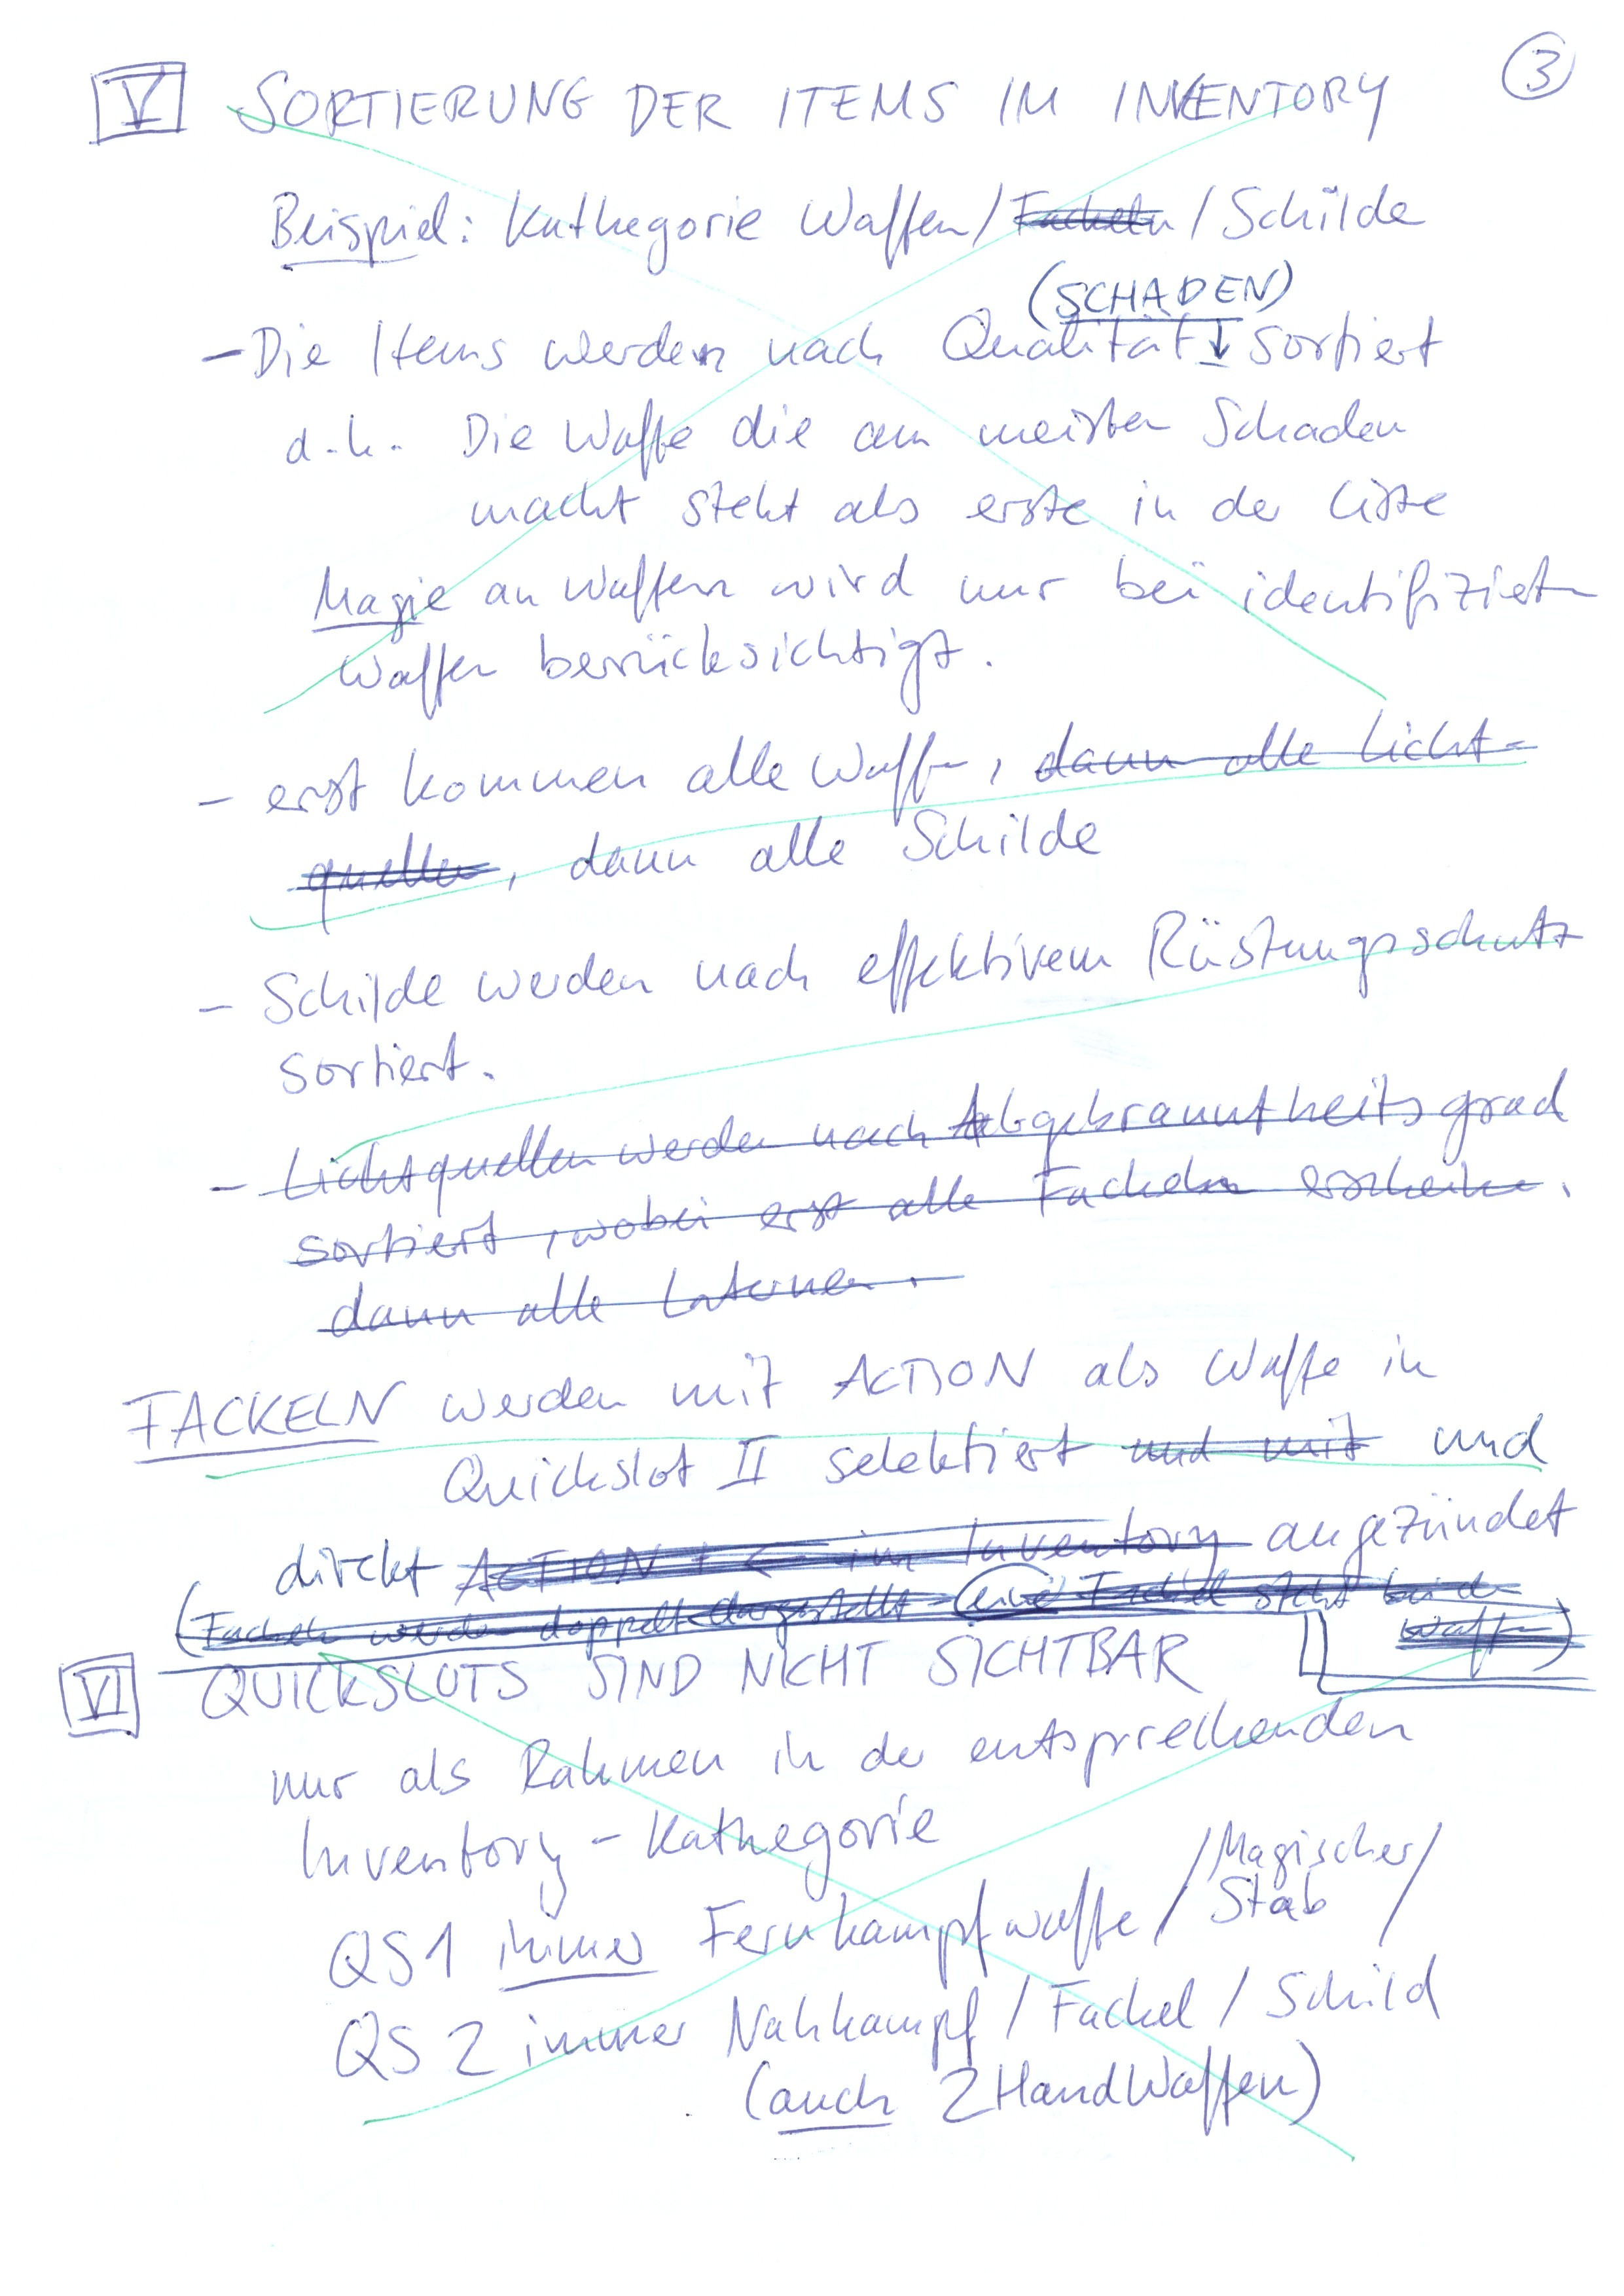 3
V SORTIERUNG DER ITEMS IM INVENTORY
Beispiel: Kathegorie Waffen/Fackeln/Schilde
(SCHADEN)
- Die Items werden nach Qualität ↓ sortiert
d.h. Die Waffe die am meisten Schaden
macht steht als erste in der Liste
Magie an Waffen wird nur bei identifizierten
Waffen berücksichtigt.
- erst kommen alle Waffen, dann alle Licht-
quellen, dann alle Schilde
- Schilde werden nach effektivem Rüstungsschutz
sortiert.
- Lichtquellen werden nach Abgebranntheitsgrad
sortiert, wobei erst alle Fackeln erscheinen.
dann alle Laternen.
FACKELN werden mit ACTION als Waffe in
Quickslot II selektiert und mit und
direkt ACTION + < im Inventory angezündet
(Fackeln werden doppelt dargestellt - eine Fackel steht bei den
Waffen)
VI QUICKSLOTS SIND NICHT SICHTBAR
nur als Rahmen in der entsprechenden
Inventory-Kathegorie
QS1 immer Fernkampfwaffe / Magischer Stab /
QS 2 immer Nahkampf / Fackel / Schild
(auch 2HandWaffen)